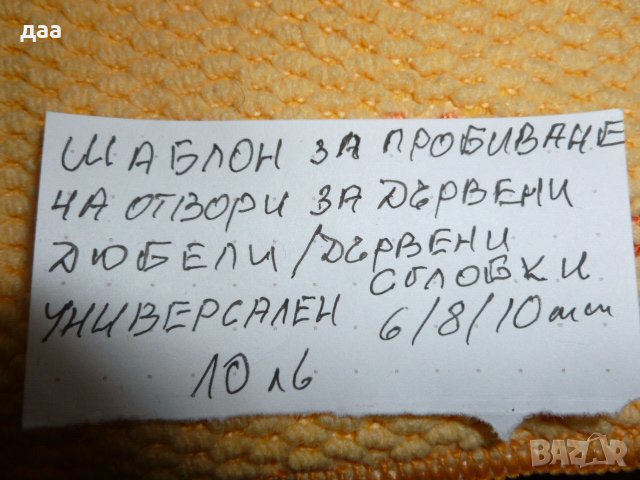 даа
ШАБЛОН ЗА ПРОБИВАНЕ
НА ОТВОРИ ЗА ДЪРВЕНИ
ДЮБЕЛИ/ДЪРВЕНИ
СГЛОБКИ
УНИВЕРСАЛЕН 6/8/10mm
10 лв
BAZAR